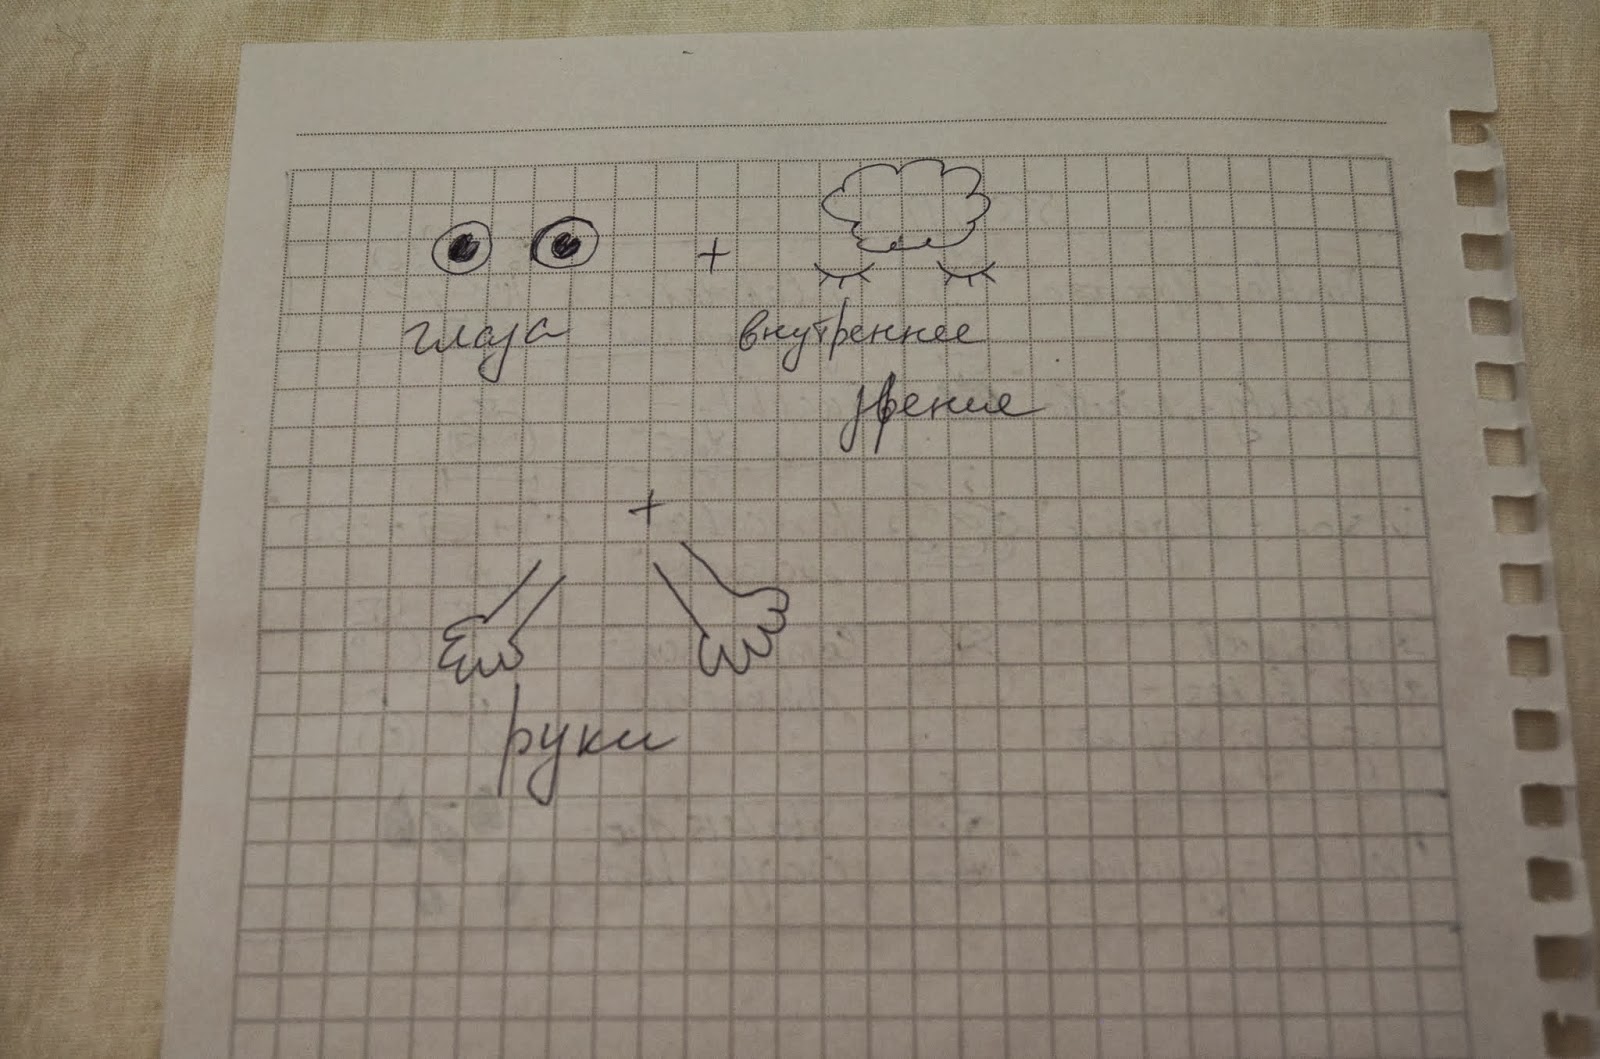 +
глаза внутреннее
зрение
+
руки